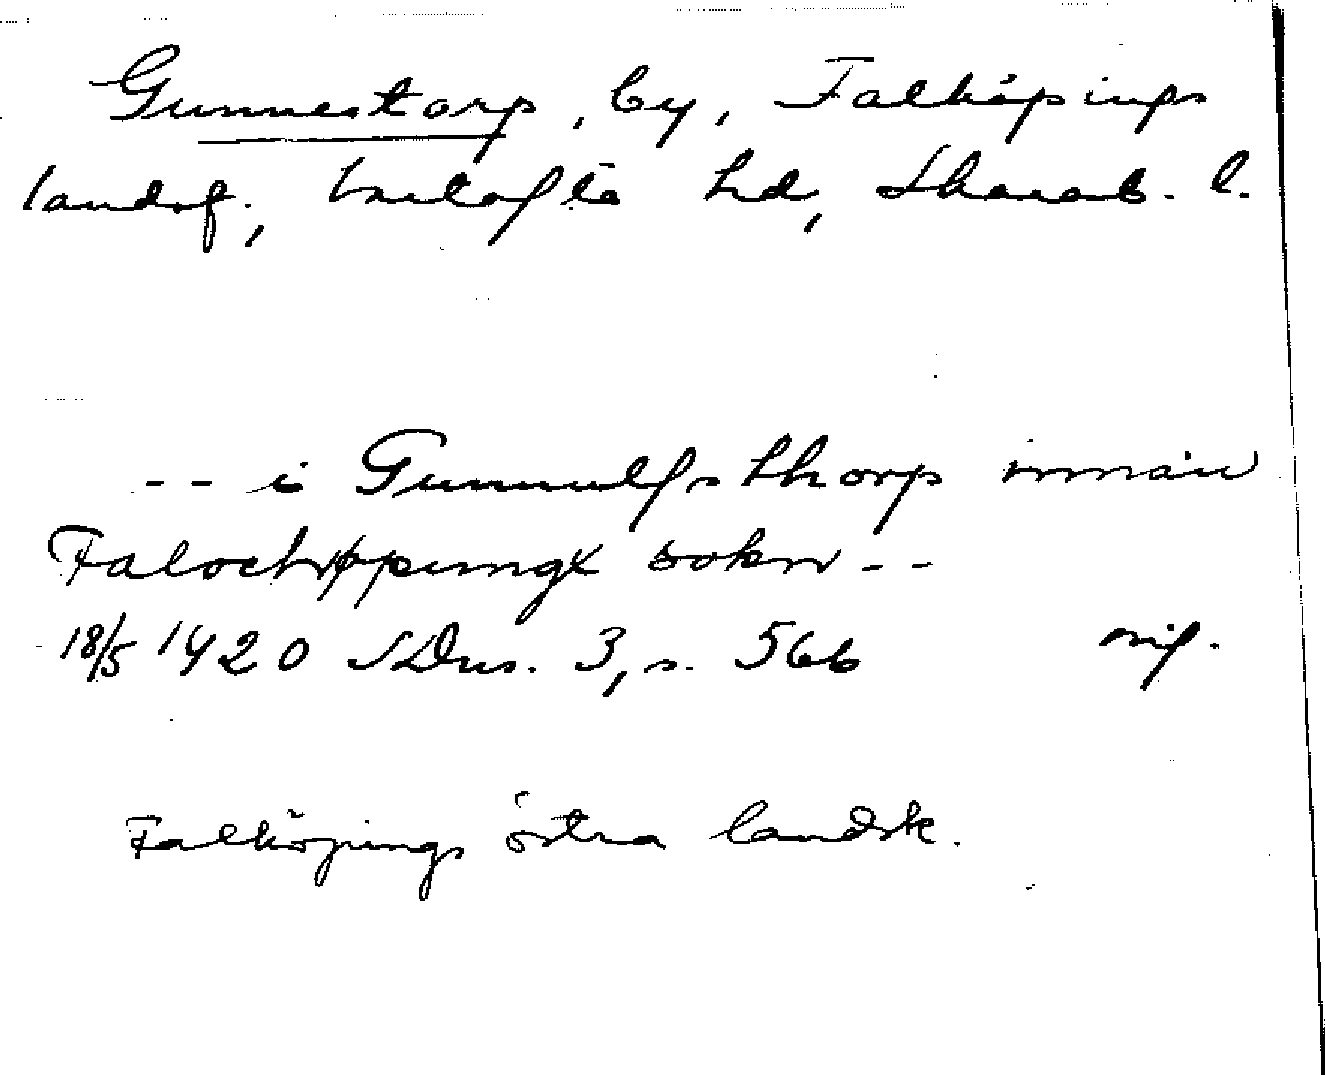 Gunnestorp, by, Falköpings
landsf., Vilske hd, Skarab. l.
-- i Gunnulfsthorp innan
Falochøppungx sokn --
18/5 1420 SDns. 3, s. 566
Falköpings östra landsk.